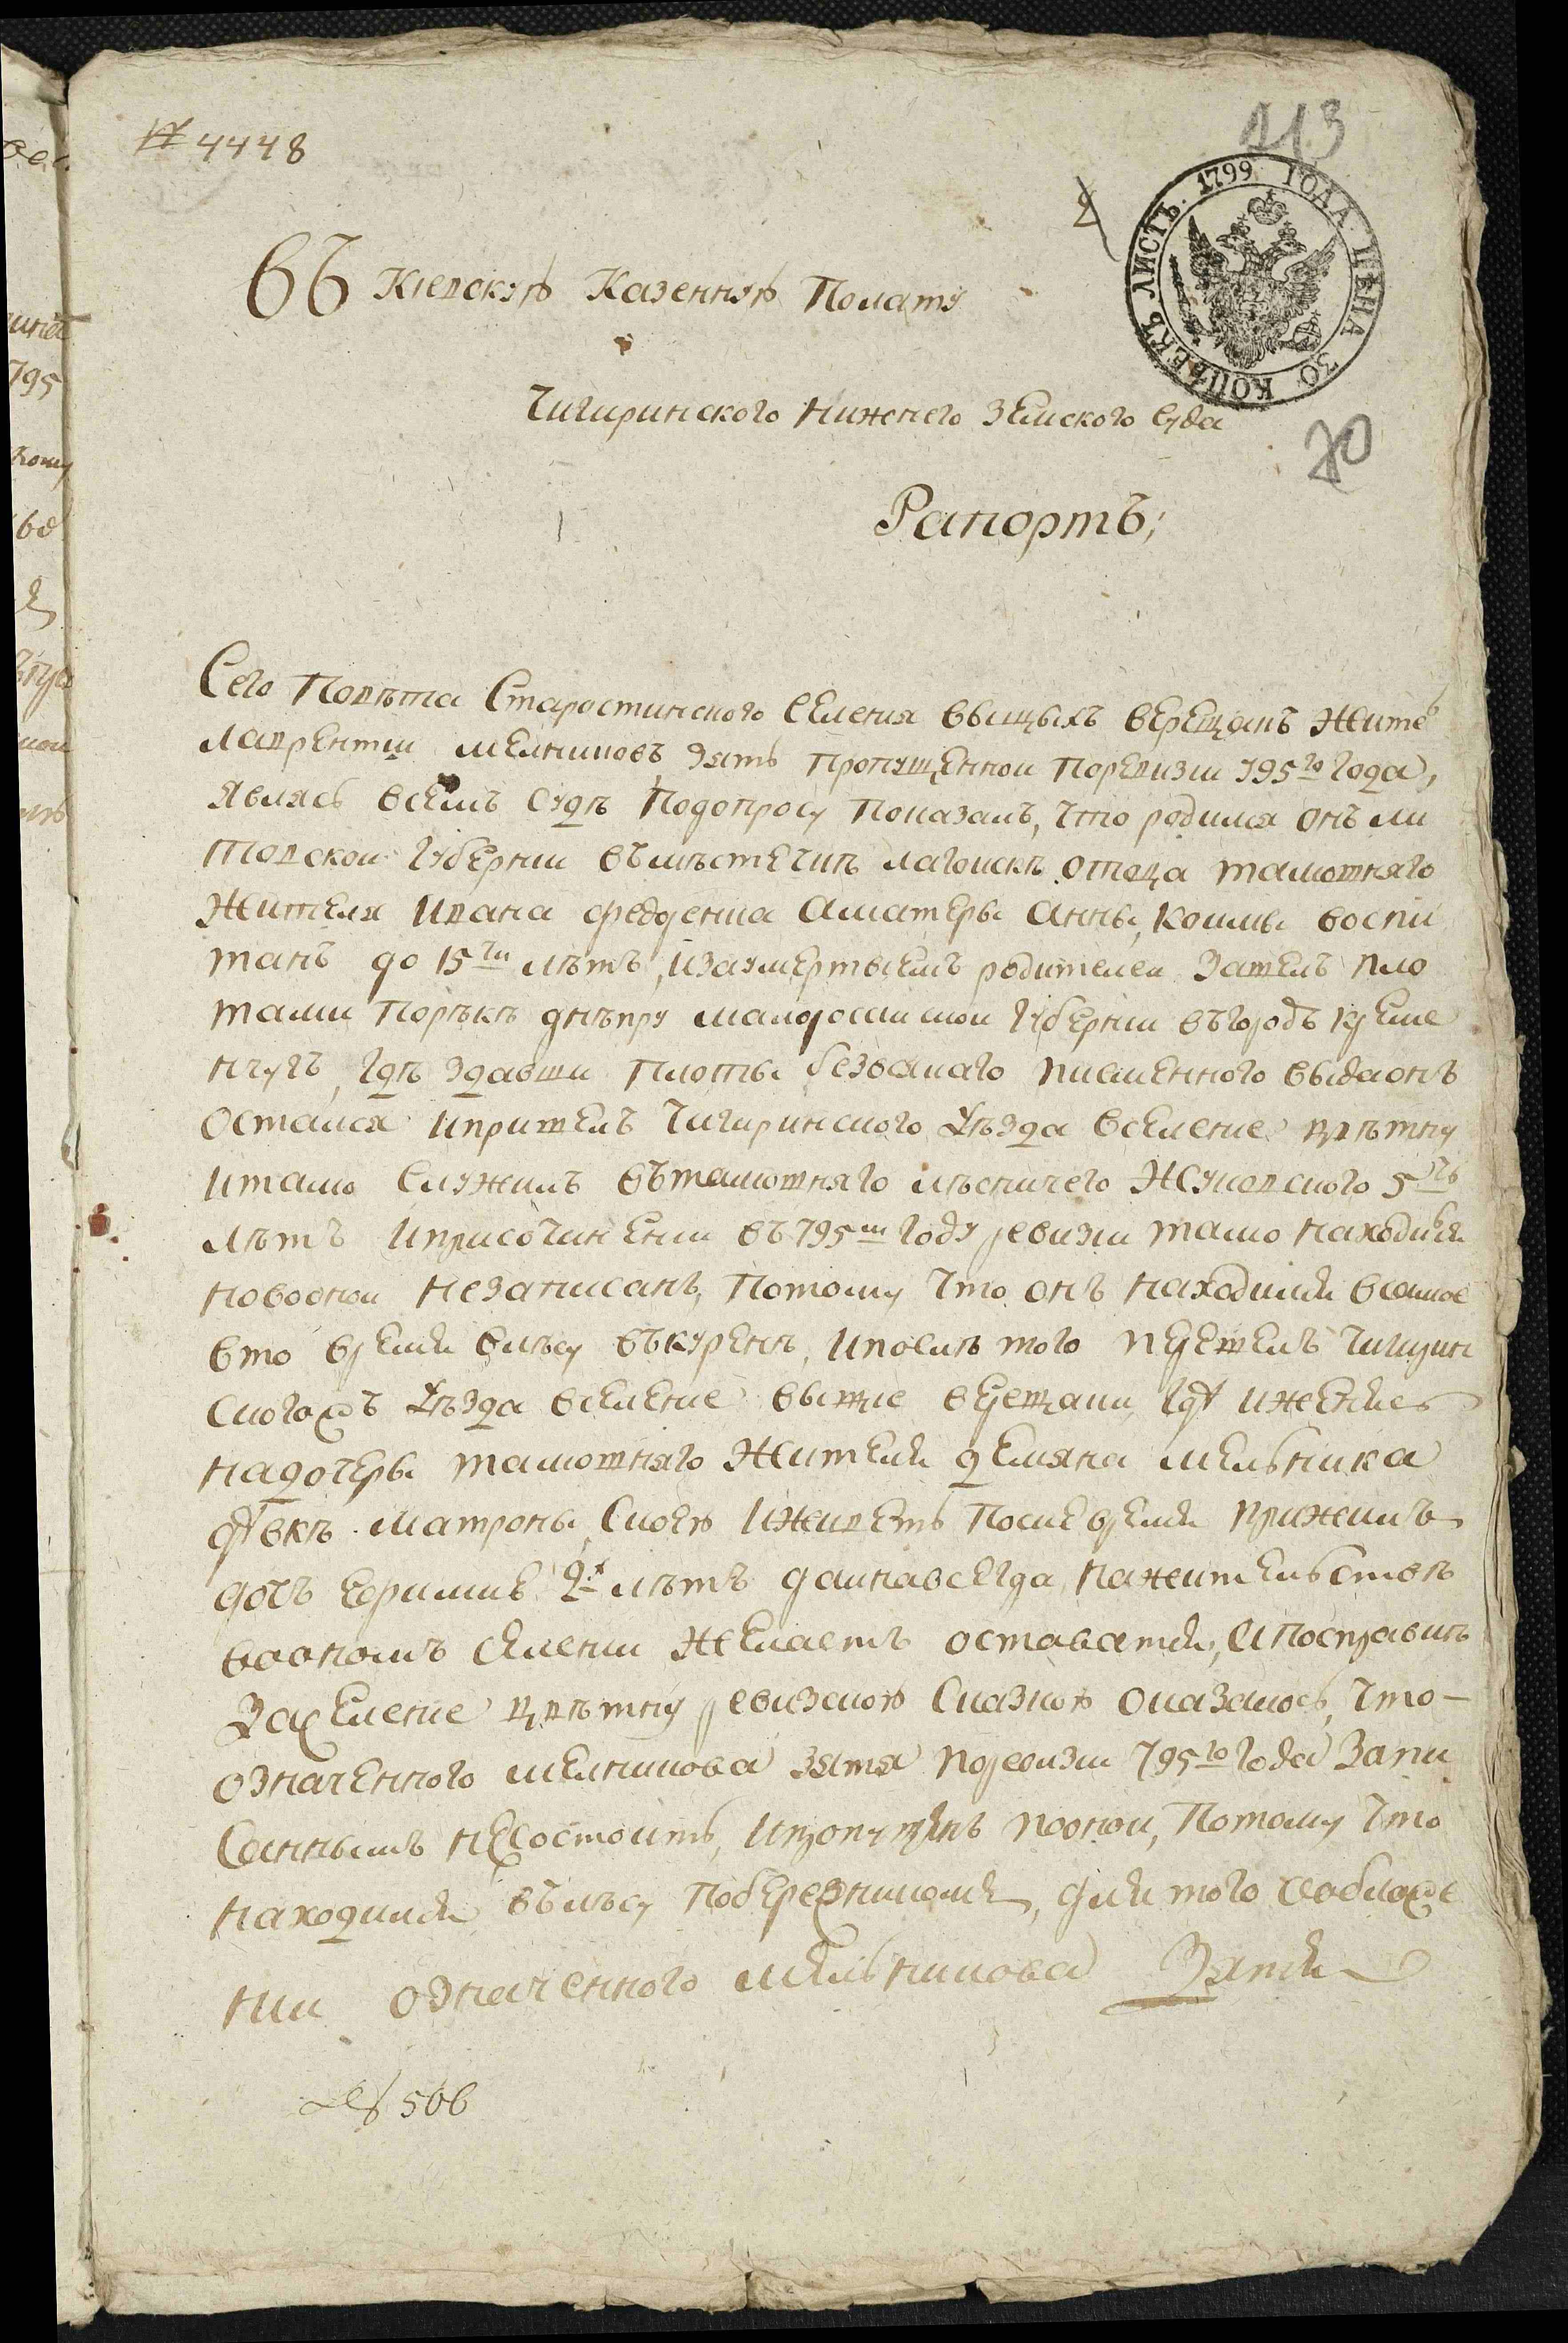 № 4448
113
1799 ГОДА ЦѢНА 30 КОПѢЕКЪ ЛИСТЪ.
Въ Кіевскую Казенную Полату
Чигиринского Нижнего Земского Суда
70
Рапортъ;
Сего Повѣта Старостинского Селенія Вьющыхъ Верещакъ Жите
Лаврентій Мелниковъ Зять Пропущенной Поревизіи 795го Года,
Являсь Всемъ Судѣ Подопросу Показалъ, Что родился Онъ ли
товской Губерніи Въмѣстечкѣ Лагоискѣ Отъ отца тамошняго
Жителя Ивана Аматери Анны, Коими Воспи
танъ до 15ти лѣтъ, Изаумертвіемъ родителей Зашелъ пло
тами Порѣкѣ днѣпру малоросійской Губерніи Вгородъ Креме
нчугъ, Гдѣ Здавши Плоты безвсякаго писменного Вида онъ
Остался Ипришелъ Чигиринского Уѣзда Вселеніе Цвѣтну
Итамо Служилъ Вътамошняго лѣсничего Жуковского 5ть
лѣтъ Иприсочиненіи Въ795м Году ревизіи тамо находился
новоной незаписанъ, Потому Что онъ находился Всамое
Вто Время Влѣсу Вкуренѣ, Ипослѣ того перешелъ Чигирин
Скогожъ Уѣзда Вселеніе Вьющіе Верещаки, Гдѣ иженился
надочери тамошняго Жителя демяна мельника
дѣвкѣ Матроны, Скоею Иживетъ Посіе Время прижилъ
дочь Ефимію 2х лѣтъ даинавсегда нажительствѣ
Воономъ Селеніи Желаетъ оставатся, Апосправкѣ
Заселеніе Цвѣтну ревизскою Сказкою оказалось, Что-
Означенного мелникова Зятя поревизіи 795го Года Запи
Саннымъ несостоитъ, Ипропущенъ поонои, Потому Что
находился Вълѣсу Побережникомъ, для того Соблаже
ніи Означенного мельникова Зятя
566